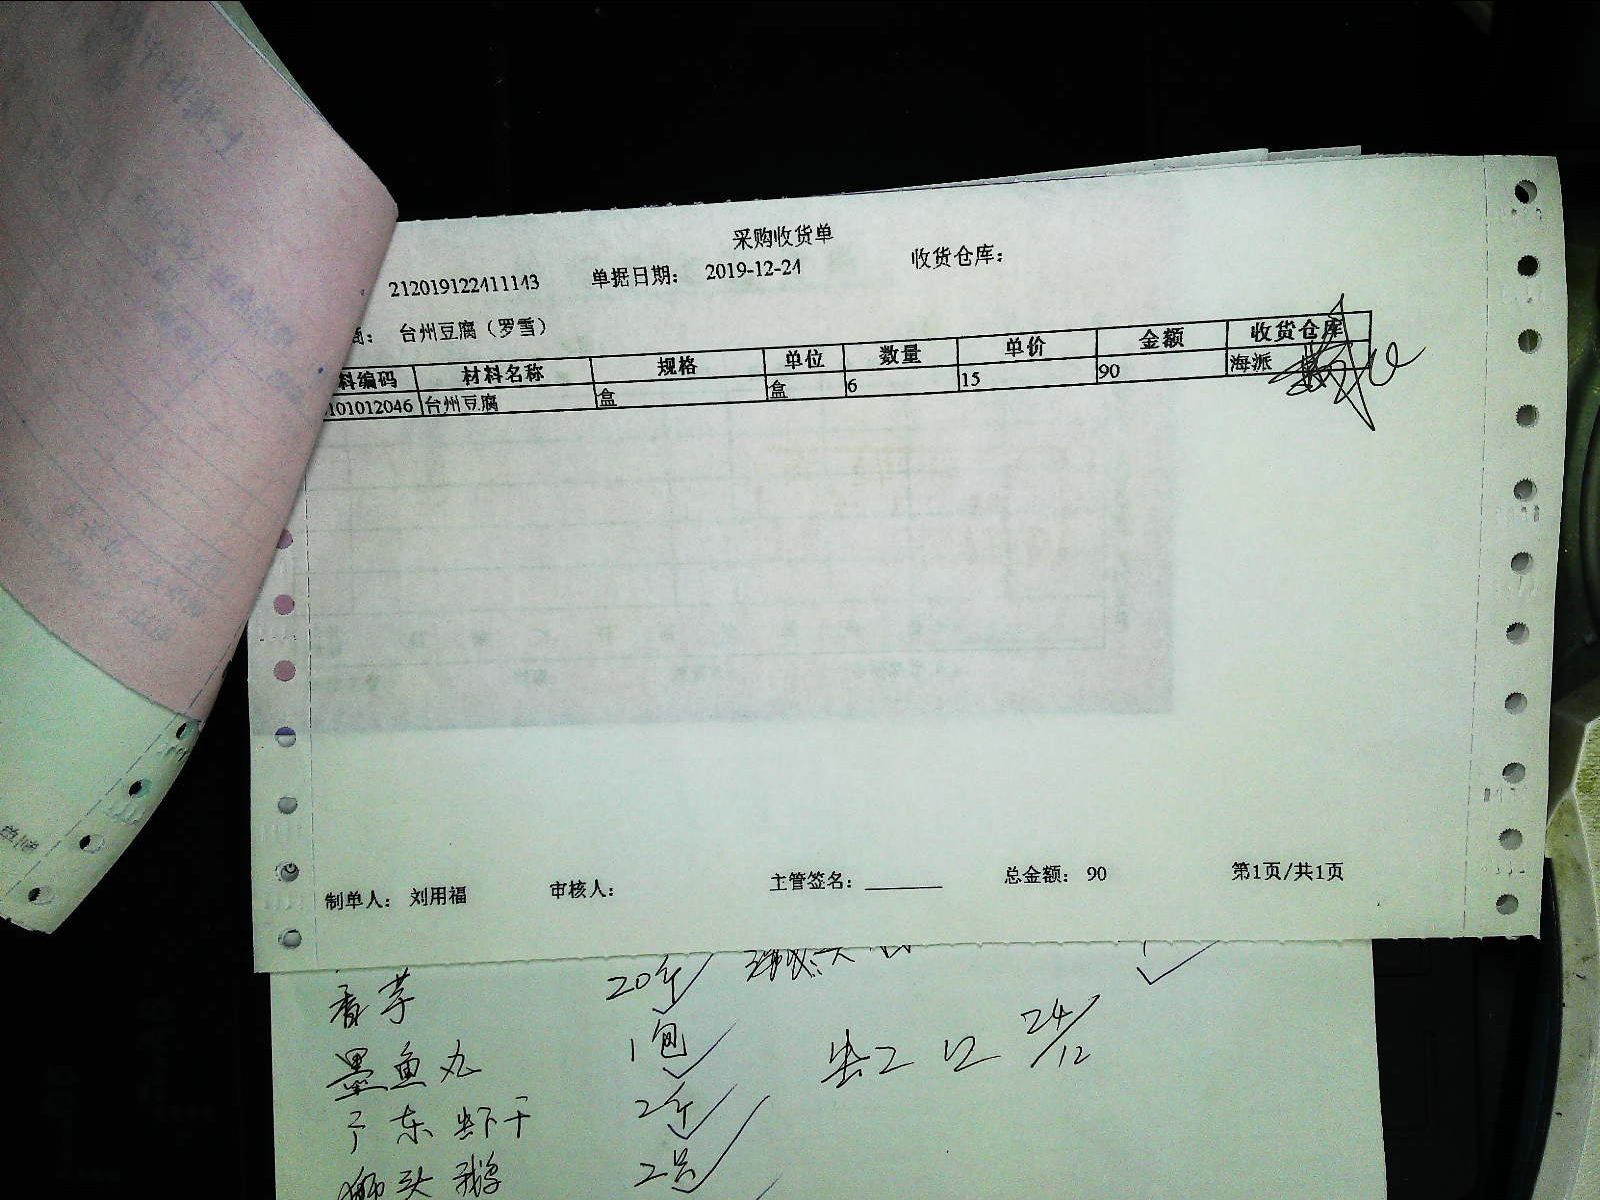 采购收货单
212019122411143 单据日期： 2019-12-24 收货仓库：
商： 台州豆腐（罗雪）
料编码 材料名称 规格 单位 数量 单价 金额 收货仓库
101012046 台州豆腐 盒 盒 6 15 90 海派
制单人： 刘用福 审核人： 主管签名： 总金额： 90 第1页/共1页
香芋 20斤
墨鱼丸 1包 24/12
广东虾干 2斤
狮头鹅 2只